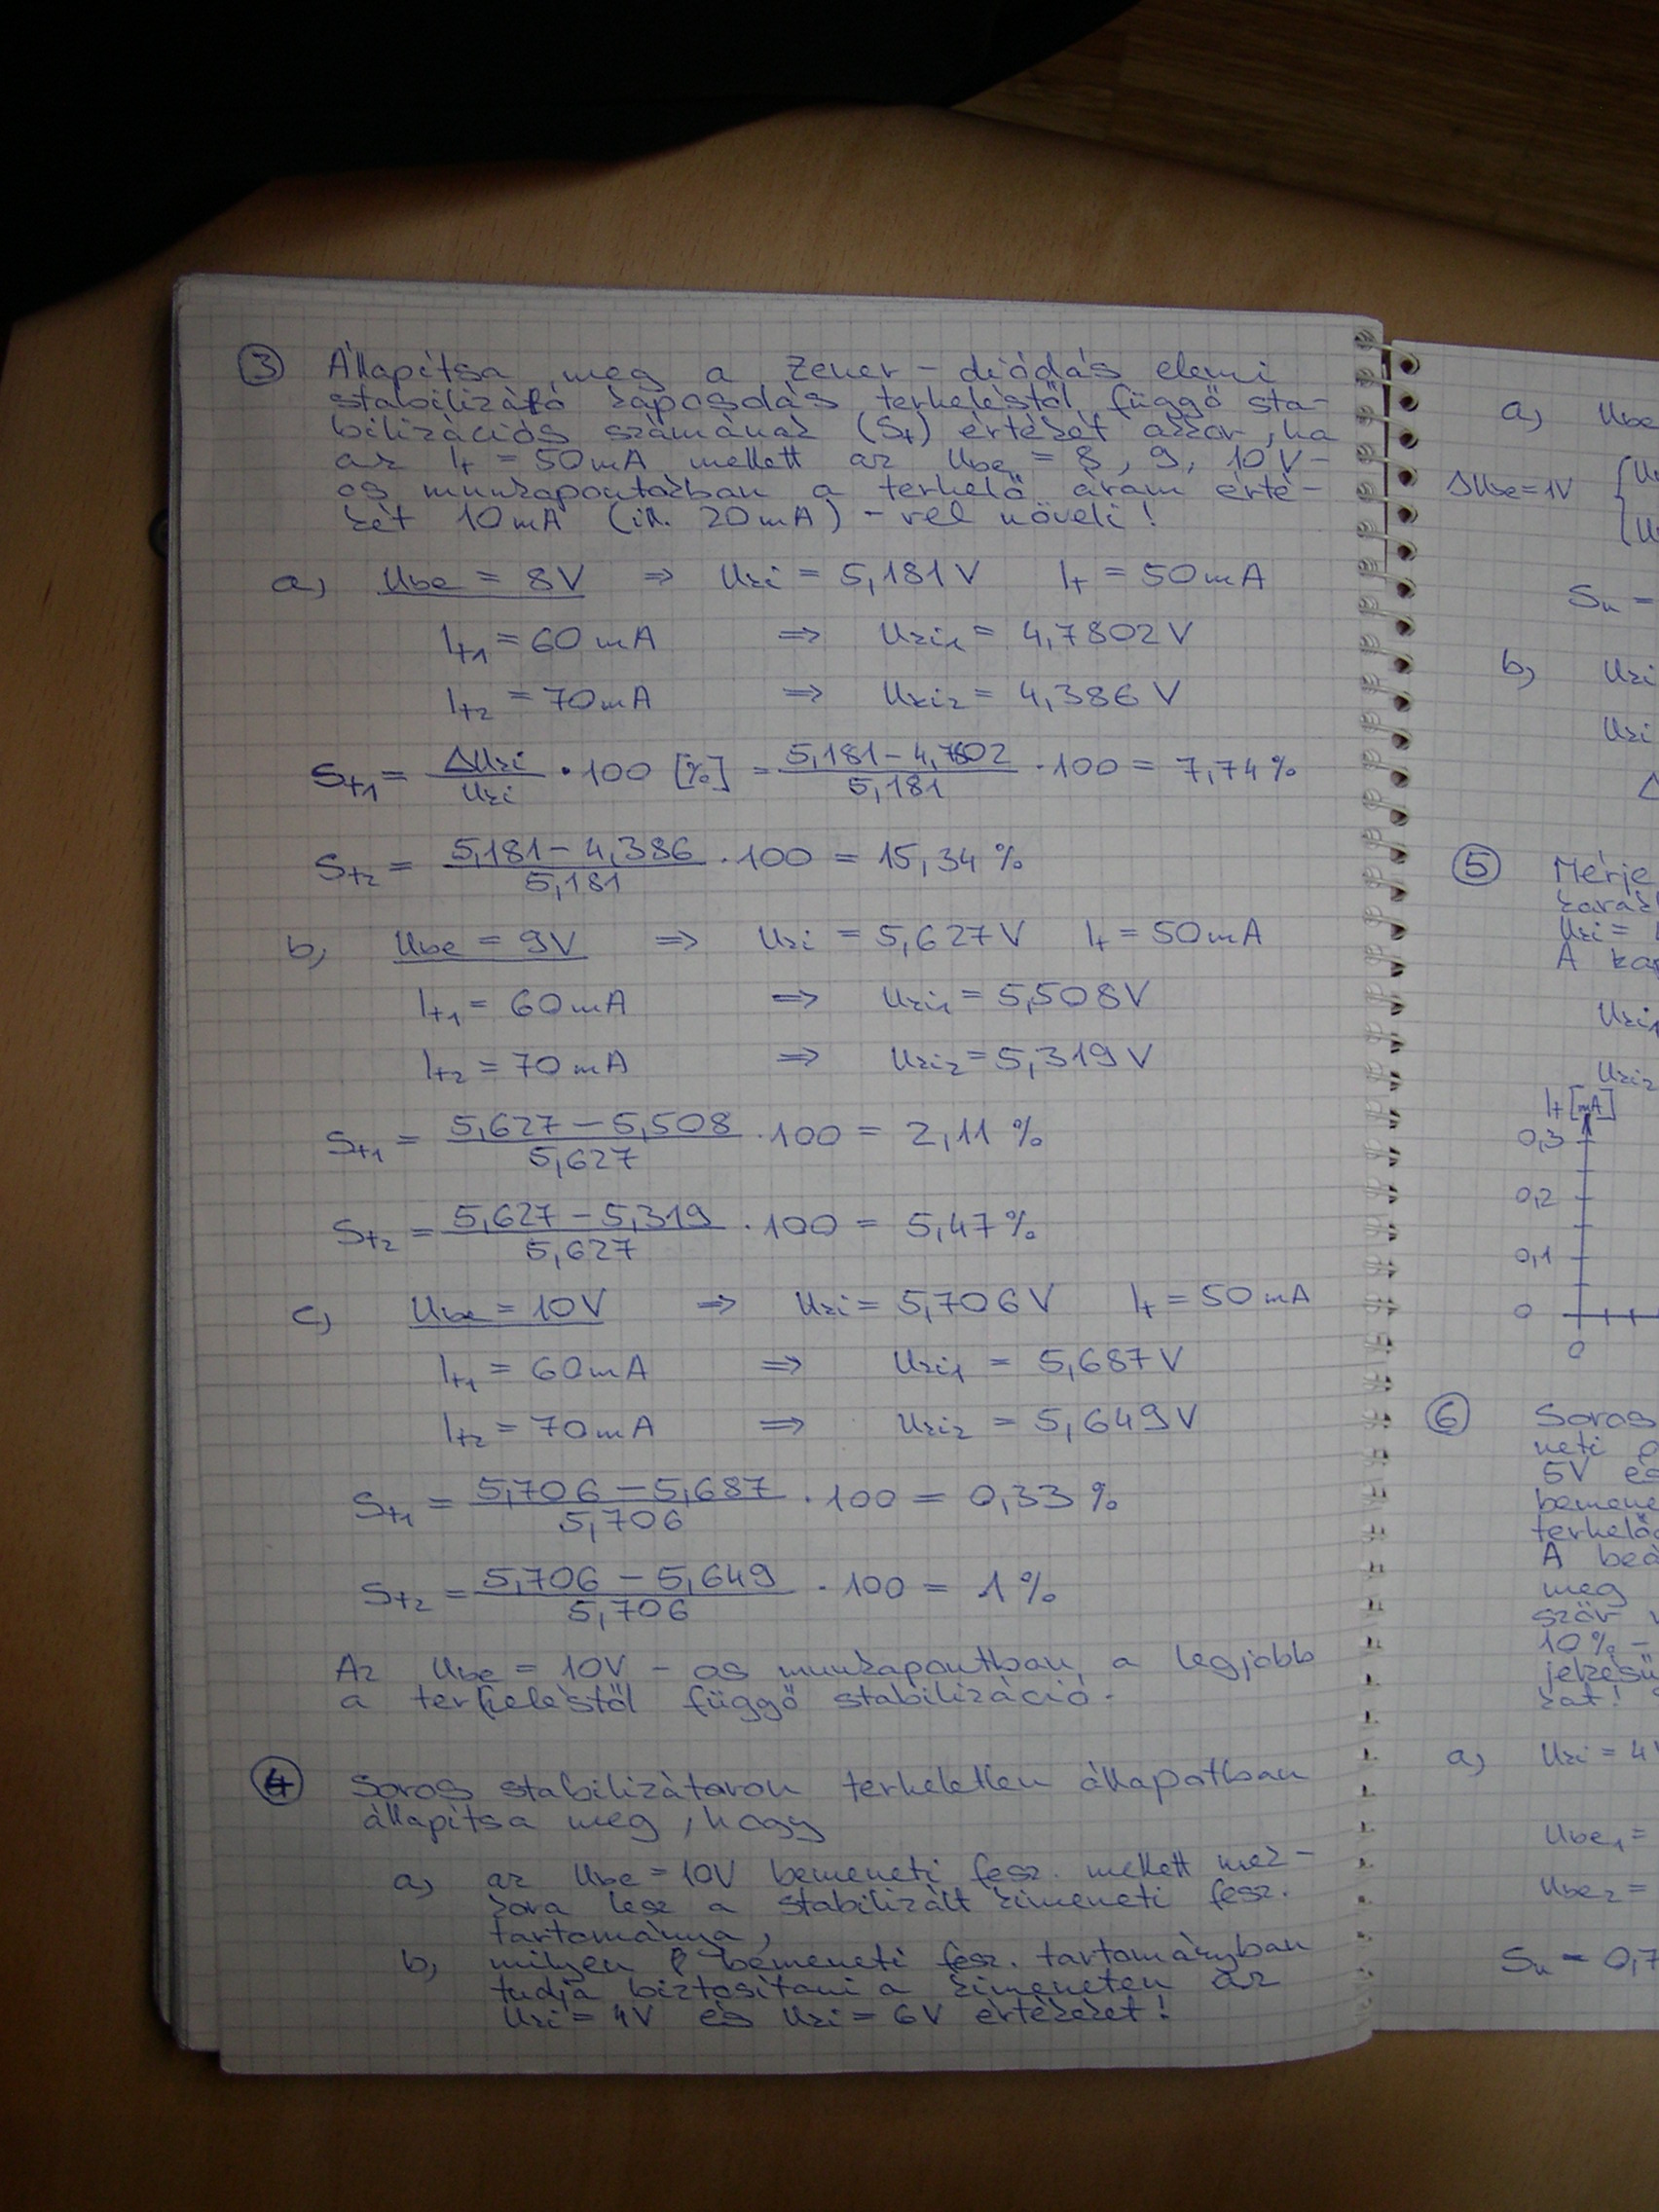 ③ Állapítsa meg a Zener-diódás elemi
stabilizáló kapcsolás terheléstől függő sta-
bilizációs számának (St) értékét akkor, ha
az It = 50mA mellett az Ube = 8, 9, 10 V-
os munkapontokban a terhelő áram érté-
két 10mA (ill. 20mA)-rel növeli!
a, Ube = 8V ⇒ Uki = 5,181V It = 50mA
It1 = 60mA ⇒ Uki1 = 4,7802V
It2 = 70mA ⇒ Uki2 = 4,386V
St1 = ΔUki/Uki · 100 [%] = (5,181-4,7802)/5,181 · 100 = 7,74%
St2 = (5,181-4,386)/5,181 · 100 = 15,34%
b, Ube = 9V ⇒ Uki = 5,627V It = 50mA
It1 = 60mA ⇒ Uki1 = 5,508V
It2 = 70mA ⇒ Uki2 = 5,319V
St1 = (5,627-5,508)/5,627 · 100 = 2,11%
St2 = (5,627-5,319)/5,627 · 100 = 5,47%
c, Ube = 10V ⇒ Uki = 5,706V It = 50mA
It1 = 60mA ⇒ Uki1 = 5,687V
It2 = 70mA ⇒ Uki2 = 5,649V
St1 = (5,706-5,687)/5,706 · 100 = 0,33%
St2 = (5,706-5,649)/5,706 · 100 = 1%
Az Ube = 10V-os munkapontban a legjobb
a terheléstől függő stabilizáció.
④ Soros stabilizátoron terheletlen állapotban
állapítsa meg, hogy
a, az Ube = 10V bemeneti fesz. mellett mek-
kora lesz a stabilizált kimeneti fesz.
tartománya,
b, milyen bemeneti fesz. tartományban
tudja biztosítani a kimeneten az
Uki = 4V és Uki = 6V értékeket!
a, Ube
ΔUbe = 1V
Su =
b, Uki
Uki
Δ
⑤ Mérje
Uki =
A
Uki1
Uki2
It [mA]
0,3
0,2
0,1
0
0
⑥ Soros
neti
5V és
beme
terhelő
A
meg
10%-
a, Uki = 4V
Ube1 =
Ube2 =
Su = 0,7